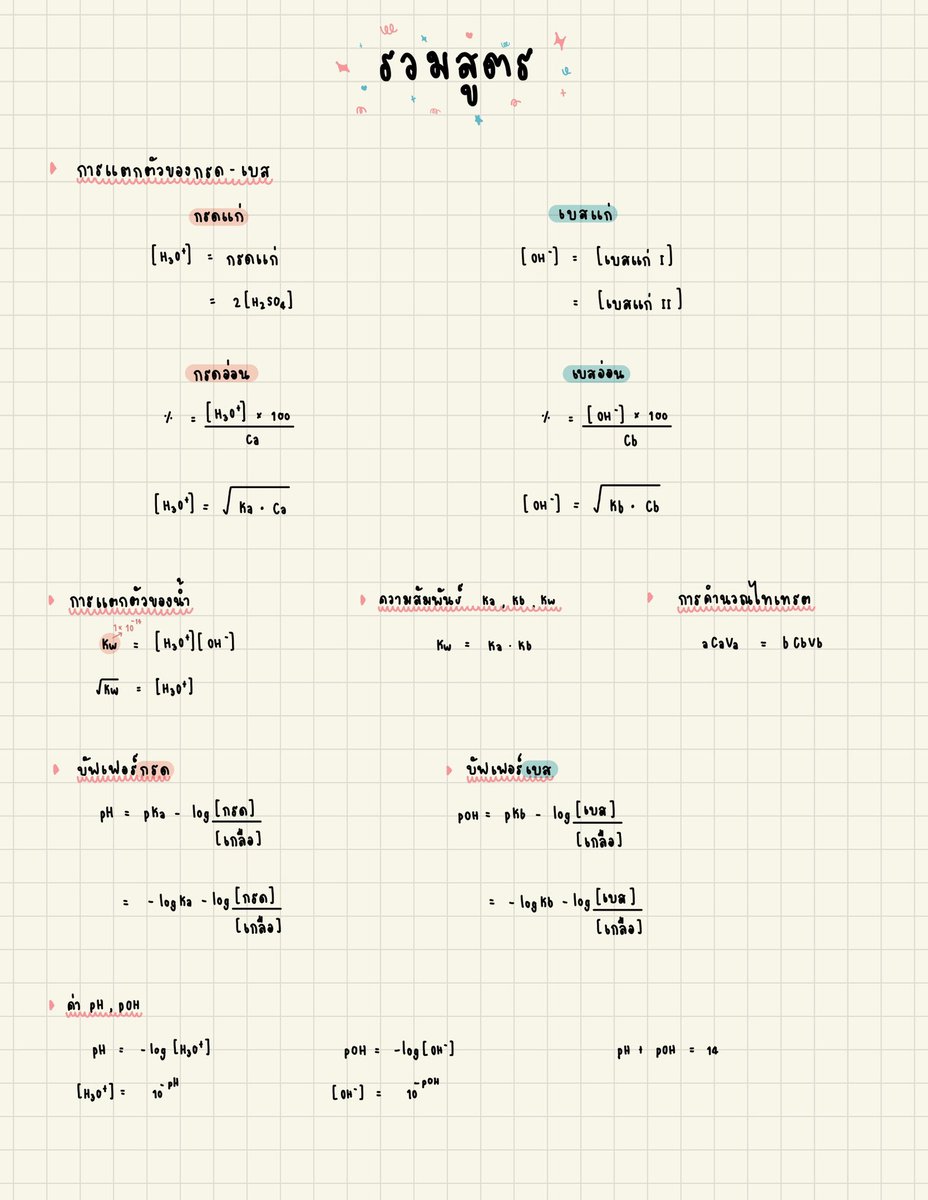 รวมสูตร
การแตกตัวของกรด - เบส
กรดแก่
[H₃O⁺] = กรดแก่
= 2[H₂SO₄]
เบสแก่
[OH⁻] = [เบสแก่ I]
= [เบสแก่ II]
กรดอ่อน
% = [H₃O⁺] × 100
Ca
[H₃O⁺] = √Ka · Ca
เบสอ่อน
% = [OH⁻] × 100
Cb
[OH⁻] = √Kb · Cb
การแตกตัวของน้ำ
1 × 10⁻¹⁴
Kw = [H₃O⁺][OH⁻]
√Kw = [H₃O⁺]
ความสัมพันธ์ Ka , Kb , Kw
Kw = Ka · Kb
การคำนวณไทเทรต
aCaVa = bCbVb
บัฟเฟอร์กรด
pH = pKa - log [กรด]
[เกลือ]
= - logKa - log [กรด]
[เกลือ]
บัฟเฟอร์เบส
pOH = pKb - log [เบส]
[เกลือ]
= - logKb - log [เบส]
[เกลือ]
ค่า pH , pOH
pH = -log [H₃O⁺]
[H₃O⁺] = 10^-pH
pOH = -log[OH⁻]
[OH⁻] = 10^-pOH
pH + pOH = 14